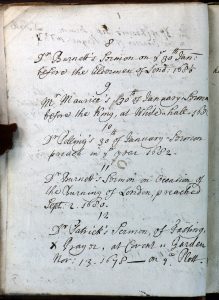 8
Dr Burnett's Sermon on ye 30th Jan:
before the Aldermen of Lond: 1680
9
Mr Maurice's 30th of January Sermon
before the King, at White-hall. 168
10
Dr 30th of January Sermon
preach'd in ye year 1682.
11
Dr Burnett's Sermon on Occasion of
the Burning of London, preached
Sept. 2. 1680.
12
Dr Patrick's Sermon, of Fasting
& Prayer, at Covent Garden
Nov: 13. 1678 — on ye Plott.